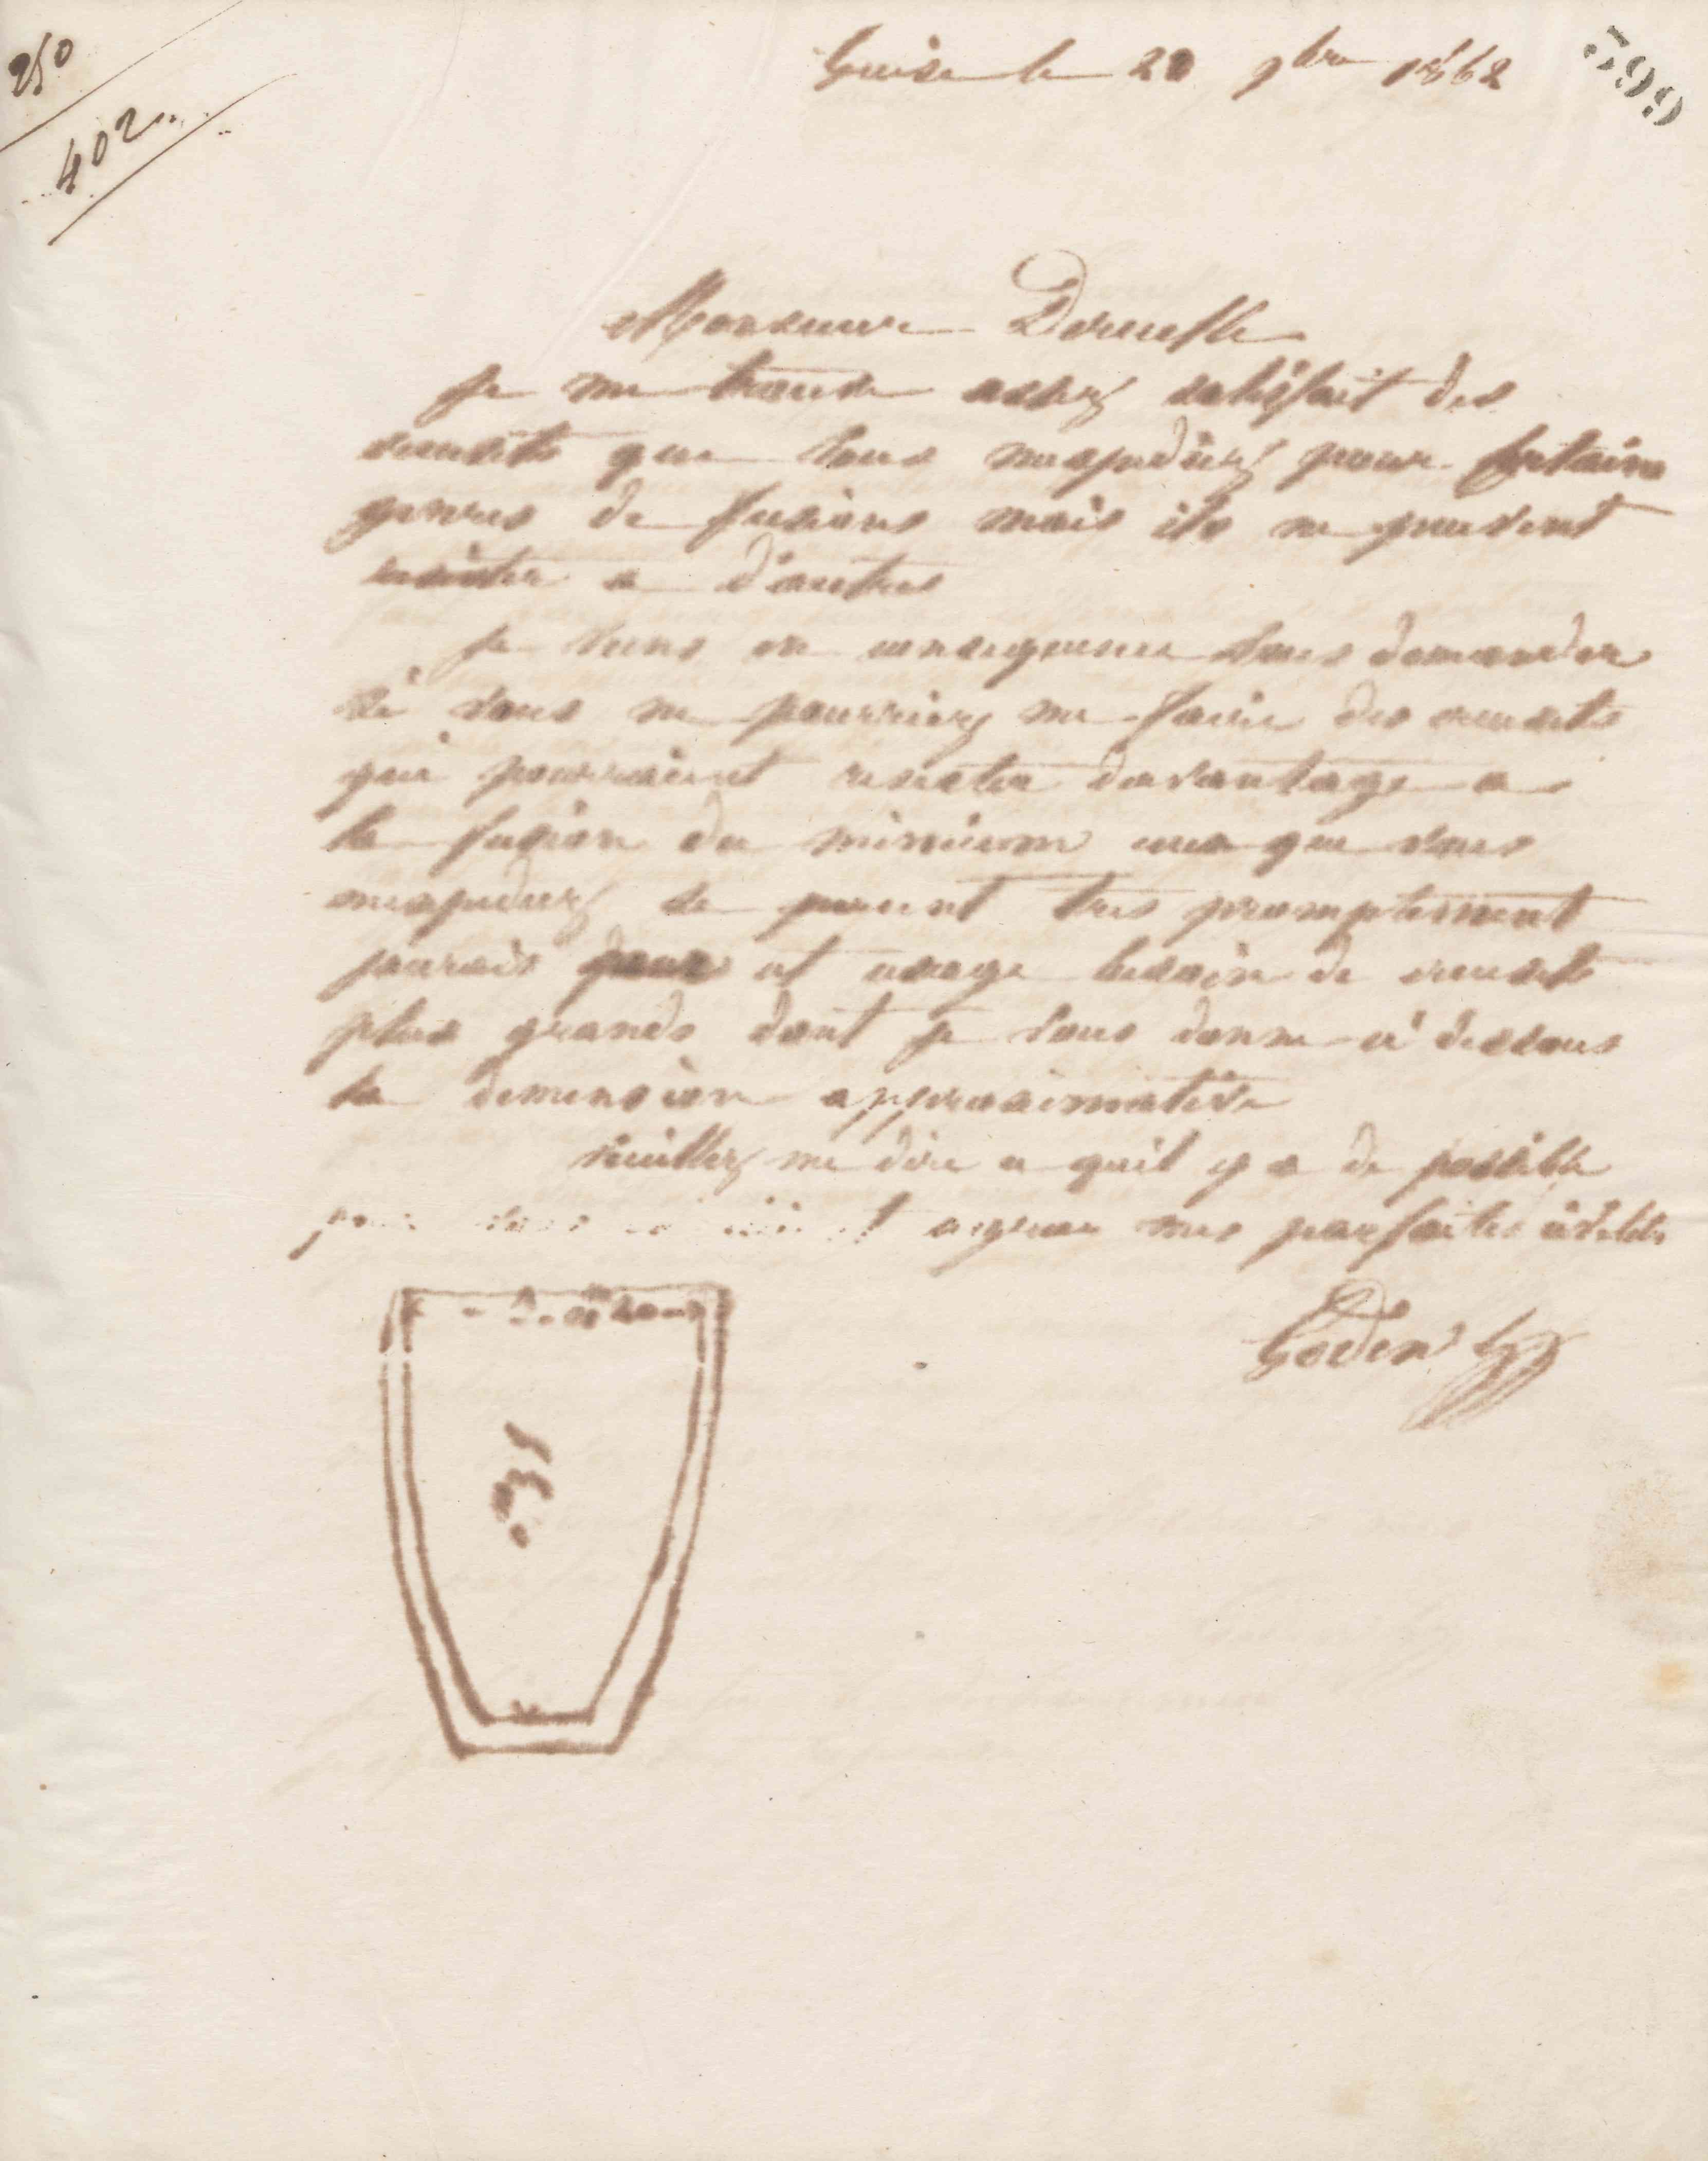 250
402
Guise le 20 9bre 1862
599
Monsieur Deruelle
je me trouve assez satisfait des
creusets que vous mexpediez pour certains
genres de fusions mais ils ne peuvent
resister a d'autres
je viens en consequence vous demander
si vous ne pourriez me faire des creusets
qui pourraient resister davantage a
la fusion du minium ceux que vous
mexpediez se percent tres promptement
jaurais pour cet usage besoin de creusets
plus grands dont je vous donne ci dessous
la dimension approximative
veuillez me dire ce quil y a de possible
pour vous et agreer mes parfaites civilités
Godin
31